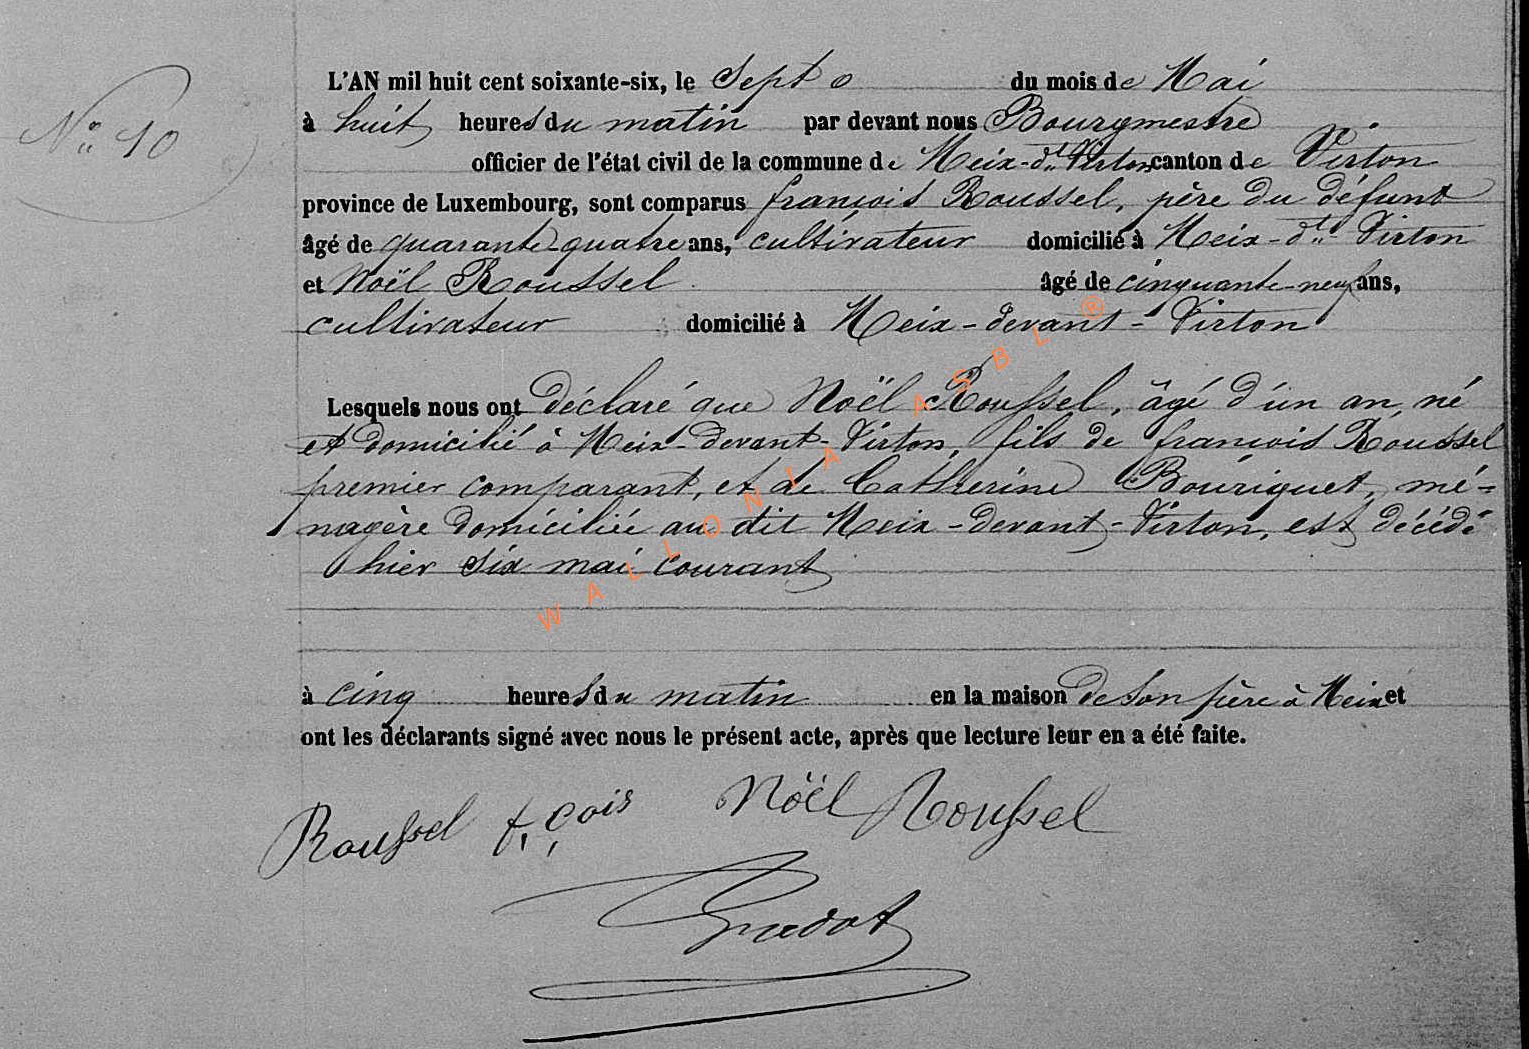 N° 10
L'AN mil huit cent soixante-six, le Sept du mois de Mai
à huit heures du matin par devant nous Bourgmestre
officier de l'état civil de la commune de Meix-dt Virton canton de Virton
province de Luxembourg, sont comparus françois Roussel, père du défunt
âgé de quarante-quatre ans, cultivateur domicilié à Meix-dt-Virton
et Noël Roussel âgé de cinquante-neuf ans,
cultivateur domicilié à Meix-devant-Virton
Lesquels nous ont déclaré que Noël Roussel, âgé d'un an, né
et domicilié à Meix-devant-Virton, fils de françois Roussel
premier comparant, et de Catherine Bouriquet, mé-
nagère domiciliée au dit Meix-devant-Virton, est décédé
hier six mai courant
à cinq heures du matin en la maison de son père à Meix et
ont les déclarants signé avec nous le présent acte, après que lecture leur en a été faite.
Roussel f,çois Noël Roussel
WALLONIA ASBL ®